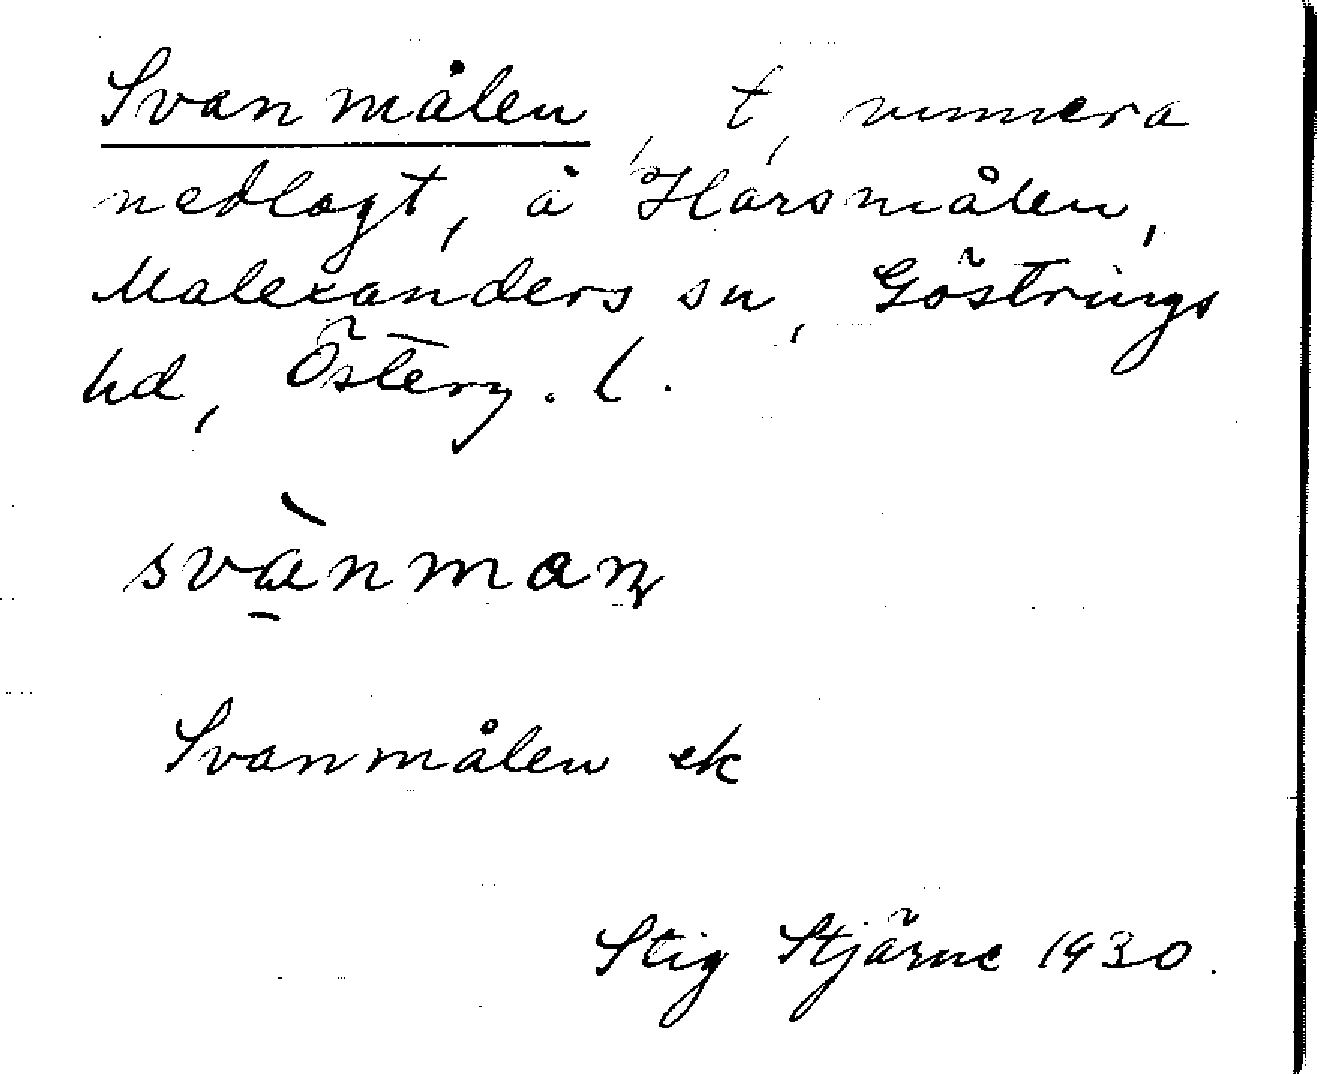 Svanmålen, t, numera
nedlagt, å Harsmålen,
Malexanders sn, Göstrings
hd, Österg. l.
svànmaɳ
Svanmålen ek
Stig Stjärne 1930.